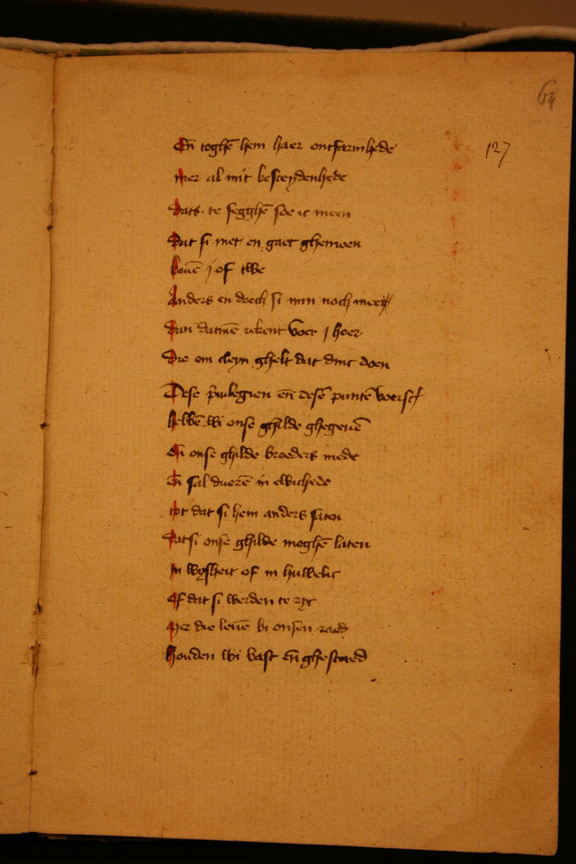 64
127
En̄ toghē hem haer ontfarmhede
mer al mit besceydenhede
Dats te segghē soe ic meen
Dat si niet en gaet ghemeen
Bouē j of twe
Anders en doech si min noch mee
Dan datmē rekent voer j hoer
Die om cleyn ghelt dat dinc doen
Dese p̄uilegien en̄ dese puntē voerscr
hebbē wi onse ghilde ghegeuē
En̄ onse ghilde broeders mede
En̄ sal duerē in ewichede
tot dat si hem anders saten
Datsi onse ghilde moghē laten
In wysheit of in huwelic
Of dat si werden te ryc
Mer die leuē bi onsen raed
Houden wi vast en̄ ghestaed